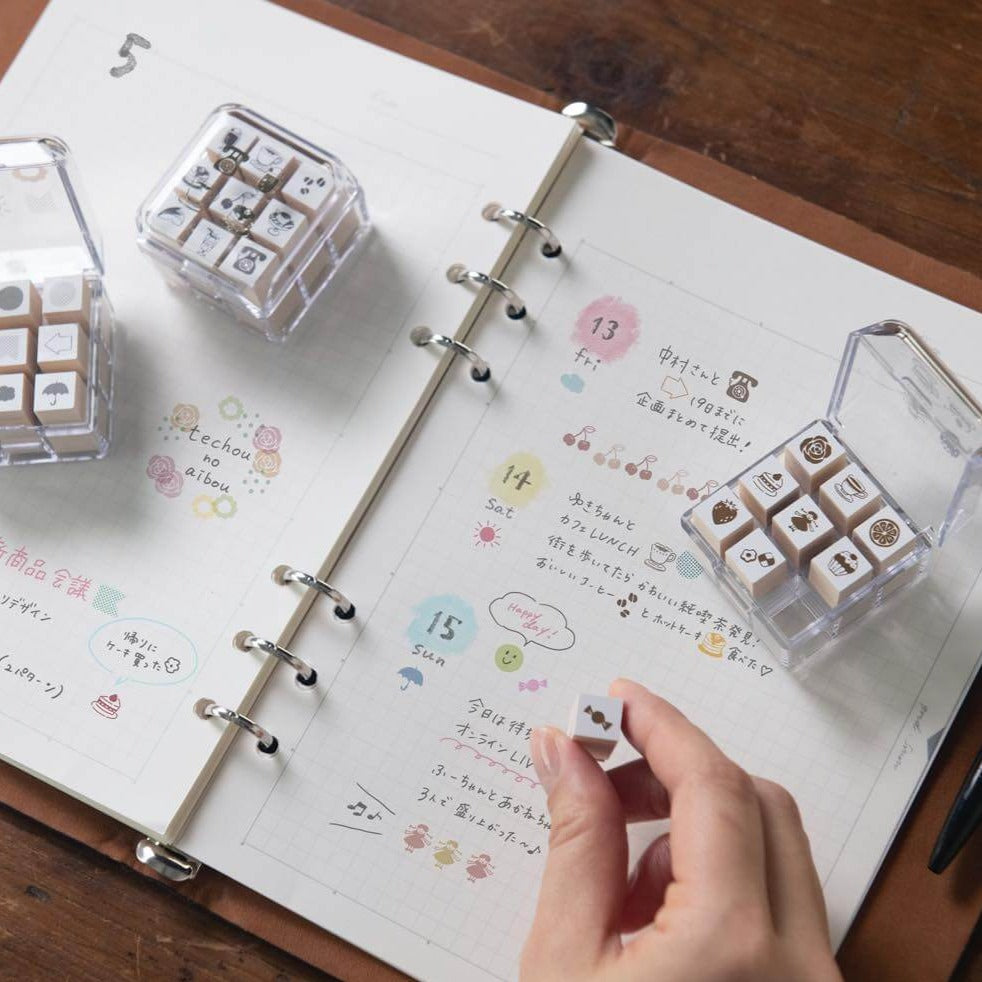 5
techou
no
aibou
新商品会議
デザイン
帰りに
ケーキ買った
(2パターン)
13
fri
中村さんと
19日までに
企画まとめて提出!
14
sat
ゆきちゃんと
カフェLUNCH
街を歩いてたら かわいい純喫茶発見!
おいしいコーヒー と ホットケーキ 食べた♡
15
sun
Happy
day!
今日は待ち
オンラインLIV
ふーちゃんとあかねちゃ
3人で盛り上がった〜♪